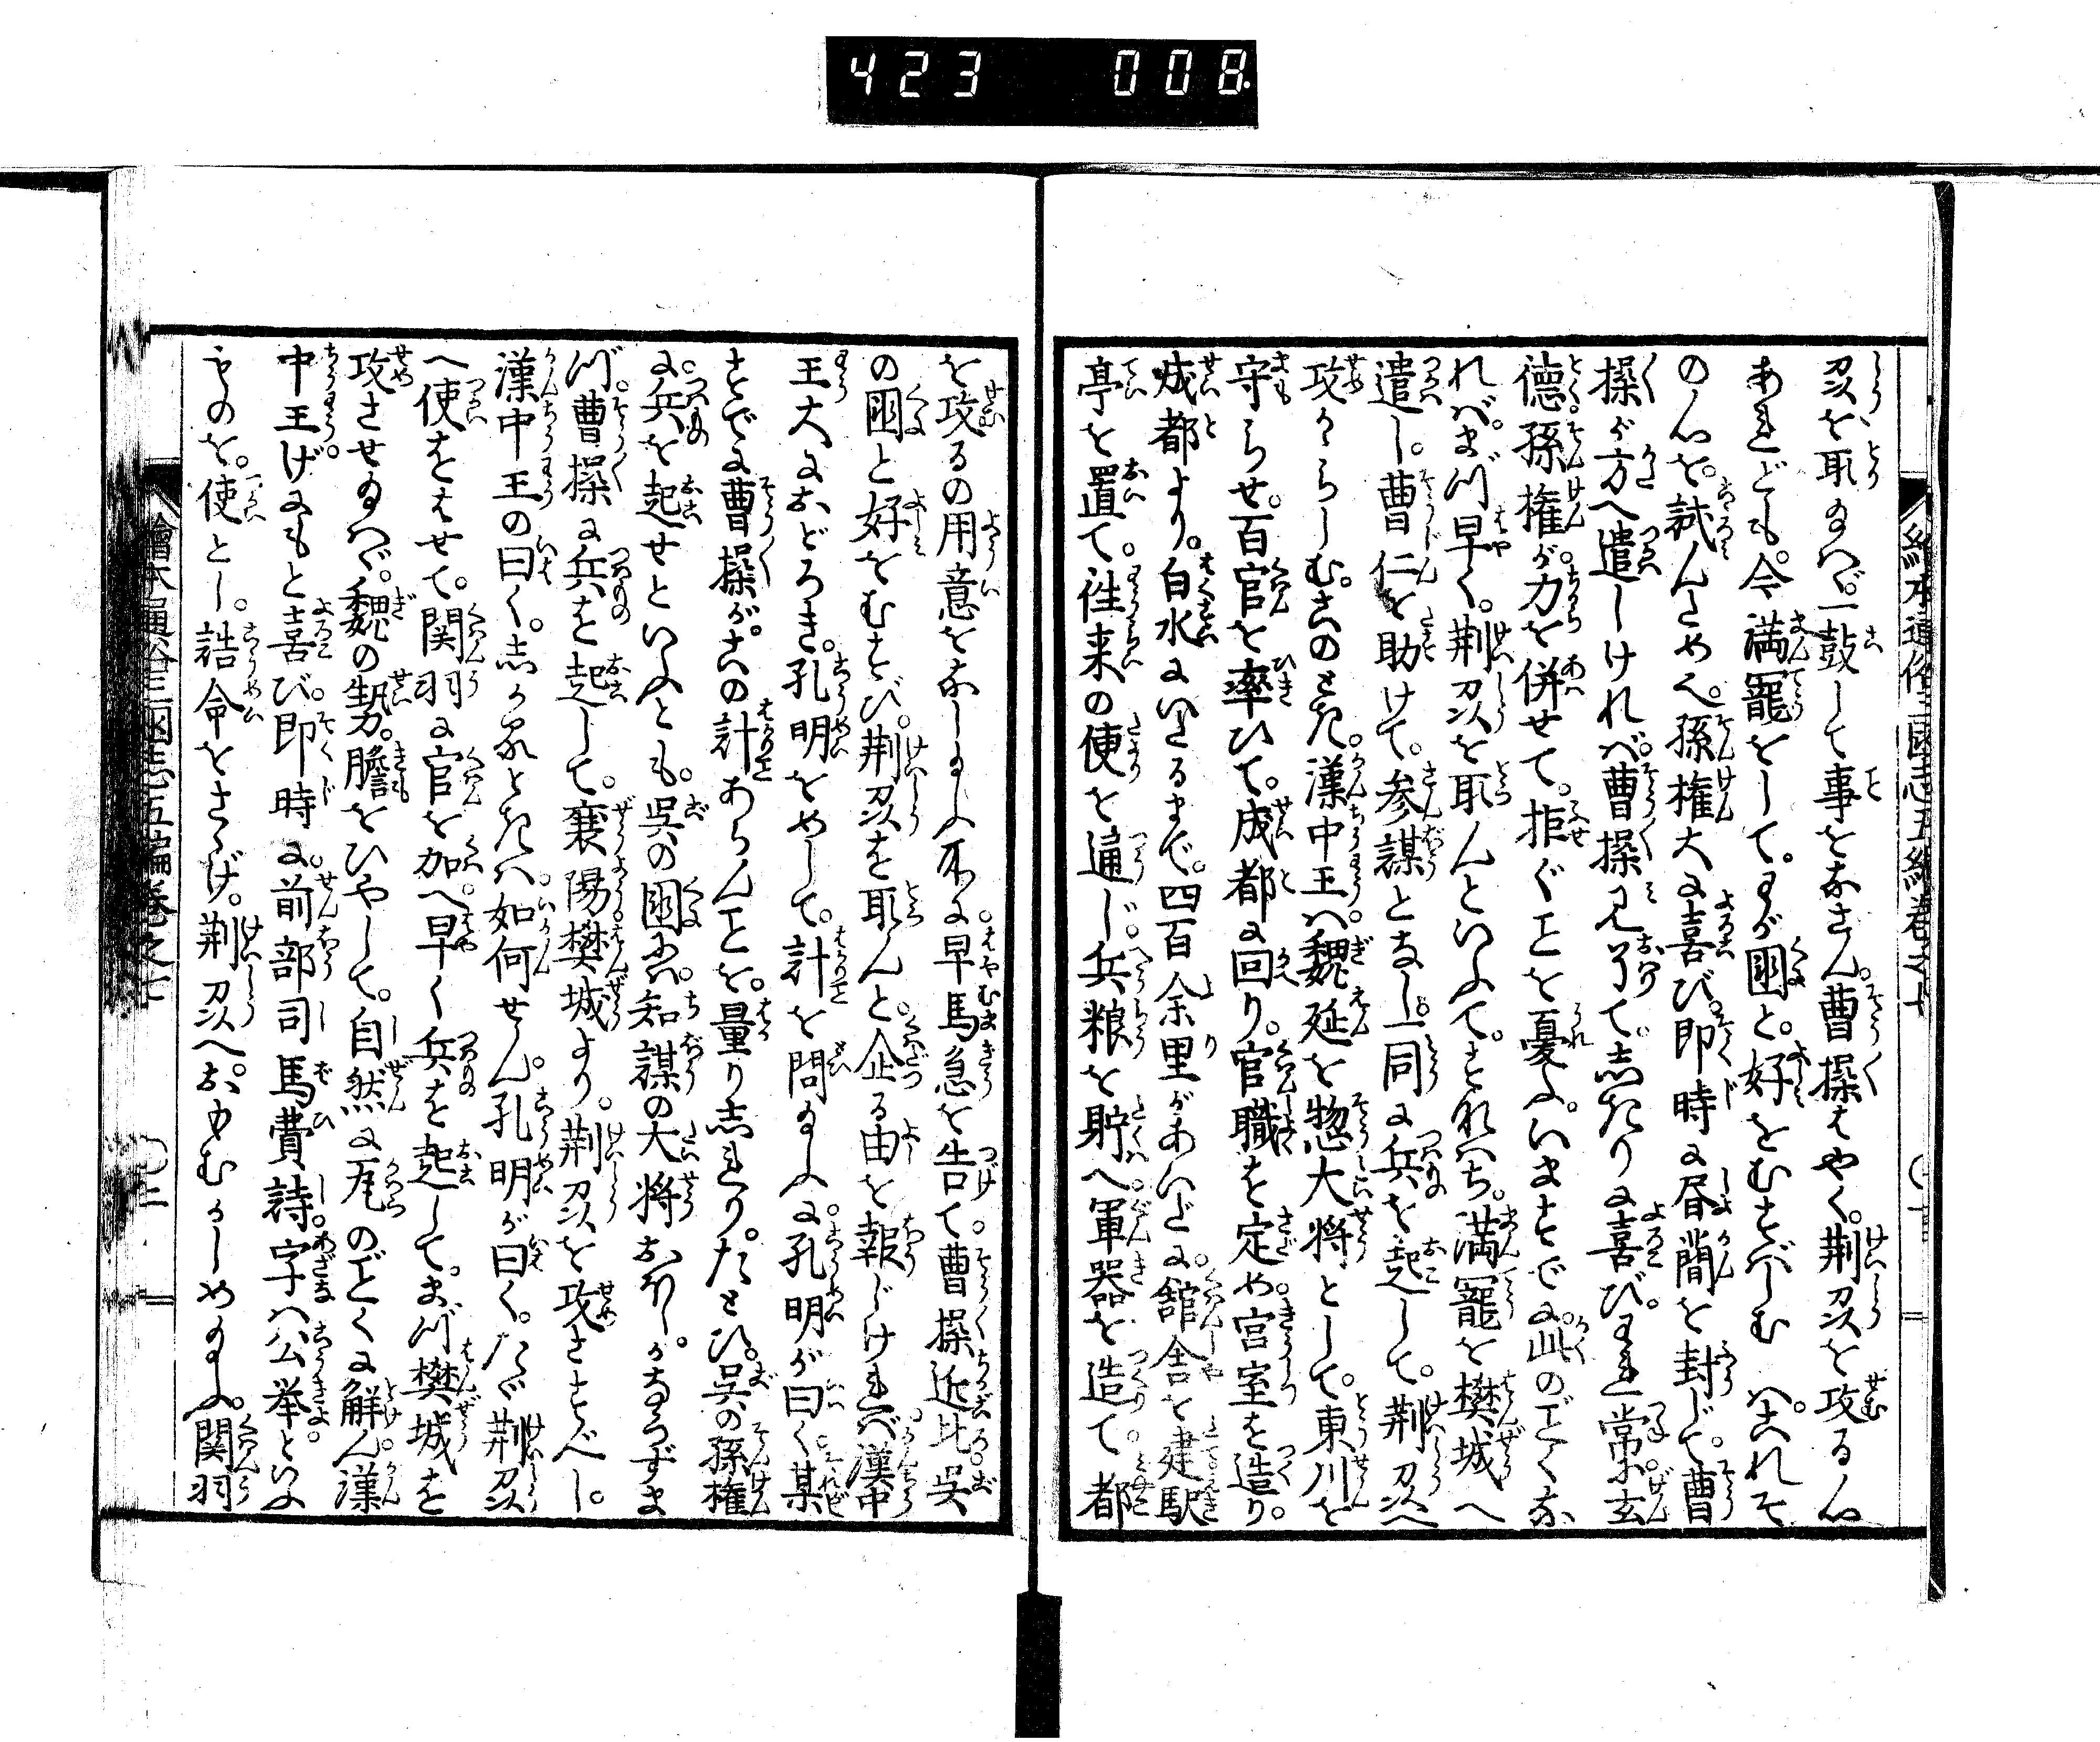 423 008
絵本通俗三國志五編巻之七
刕を取玉へバ一鼓して事をなさん。曹操はやく。荆刕を攻る心
あれども。今満寵をして。わが國と。好をむすばしむハ。これそ
の心を。試んためへ。孫権大に喜び。即時に昏簡を封じて。曹
操が方へ遣しけれバ。曹操見了て。志たりに喜び。われ常に玄
徳。孫権が。力を併せて。拒ぐことを憂ふ。いますでに。此のごとくな
れバ。まづ早く。荆刕を取んといふて。すなハち。満寵を樊城へ
遣し。曹仁を助けて。参謀となし。一同に兵を起して。荆刕へ
攻かゝらしむ。このとき。漢中王ハ。魏延を惣大将として。東川を
守らせ。百官を率ひて。成都に回り。官職を定め。宮室を造り。
成都より。白水にいたるまで。四百余里があいだに。舘舎を建。駅
亭を置て。往来の便を通じ。兵粮を貯へ。軍器を造て。都
を攻るの用意をなし玉ふ所に。早馬急を告て。曹操近比呉
の國と好をむすび。荆刕を取んと。企る由を報じけれバ。漢中
王大におどろき。孔明をめして。計を問玉ふに。孔明が曰く。某
すでに曹操が。此の計あらんことを。量り志れり。たとひ。呉の孫権
に。兵を起せといふとも。呉の國にハ。知謀の大将おほし。かならずま
づ。曹操に兵を起して。襄陽。樊城より。荆刕を攻さすべし。
漢中王の曰く。志からんときハ。如何せん。孔明が曰く。たゞ荆刕
へ使をはせて。関羽に官を加へ。早く兵を起して。まづ樊城を
攻させ玉へバ。魏の勢。膽をひやして。自然に。瓦のごとくに解ん。漢
中王げにもと喜び。即時に。前部司馬費詩。字ハ公挙といふ
ものを。使とし。誥命をさゝげ。荆刕へ。おもむかしめ玉ふ。関羽
繪本通俗三國志五編巻之七